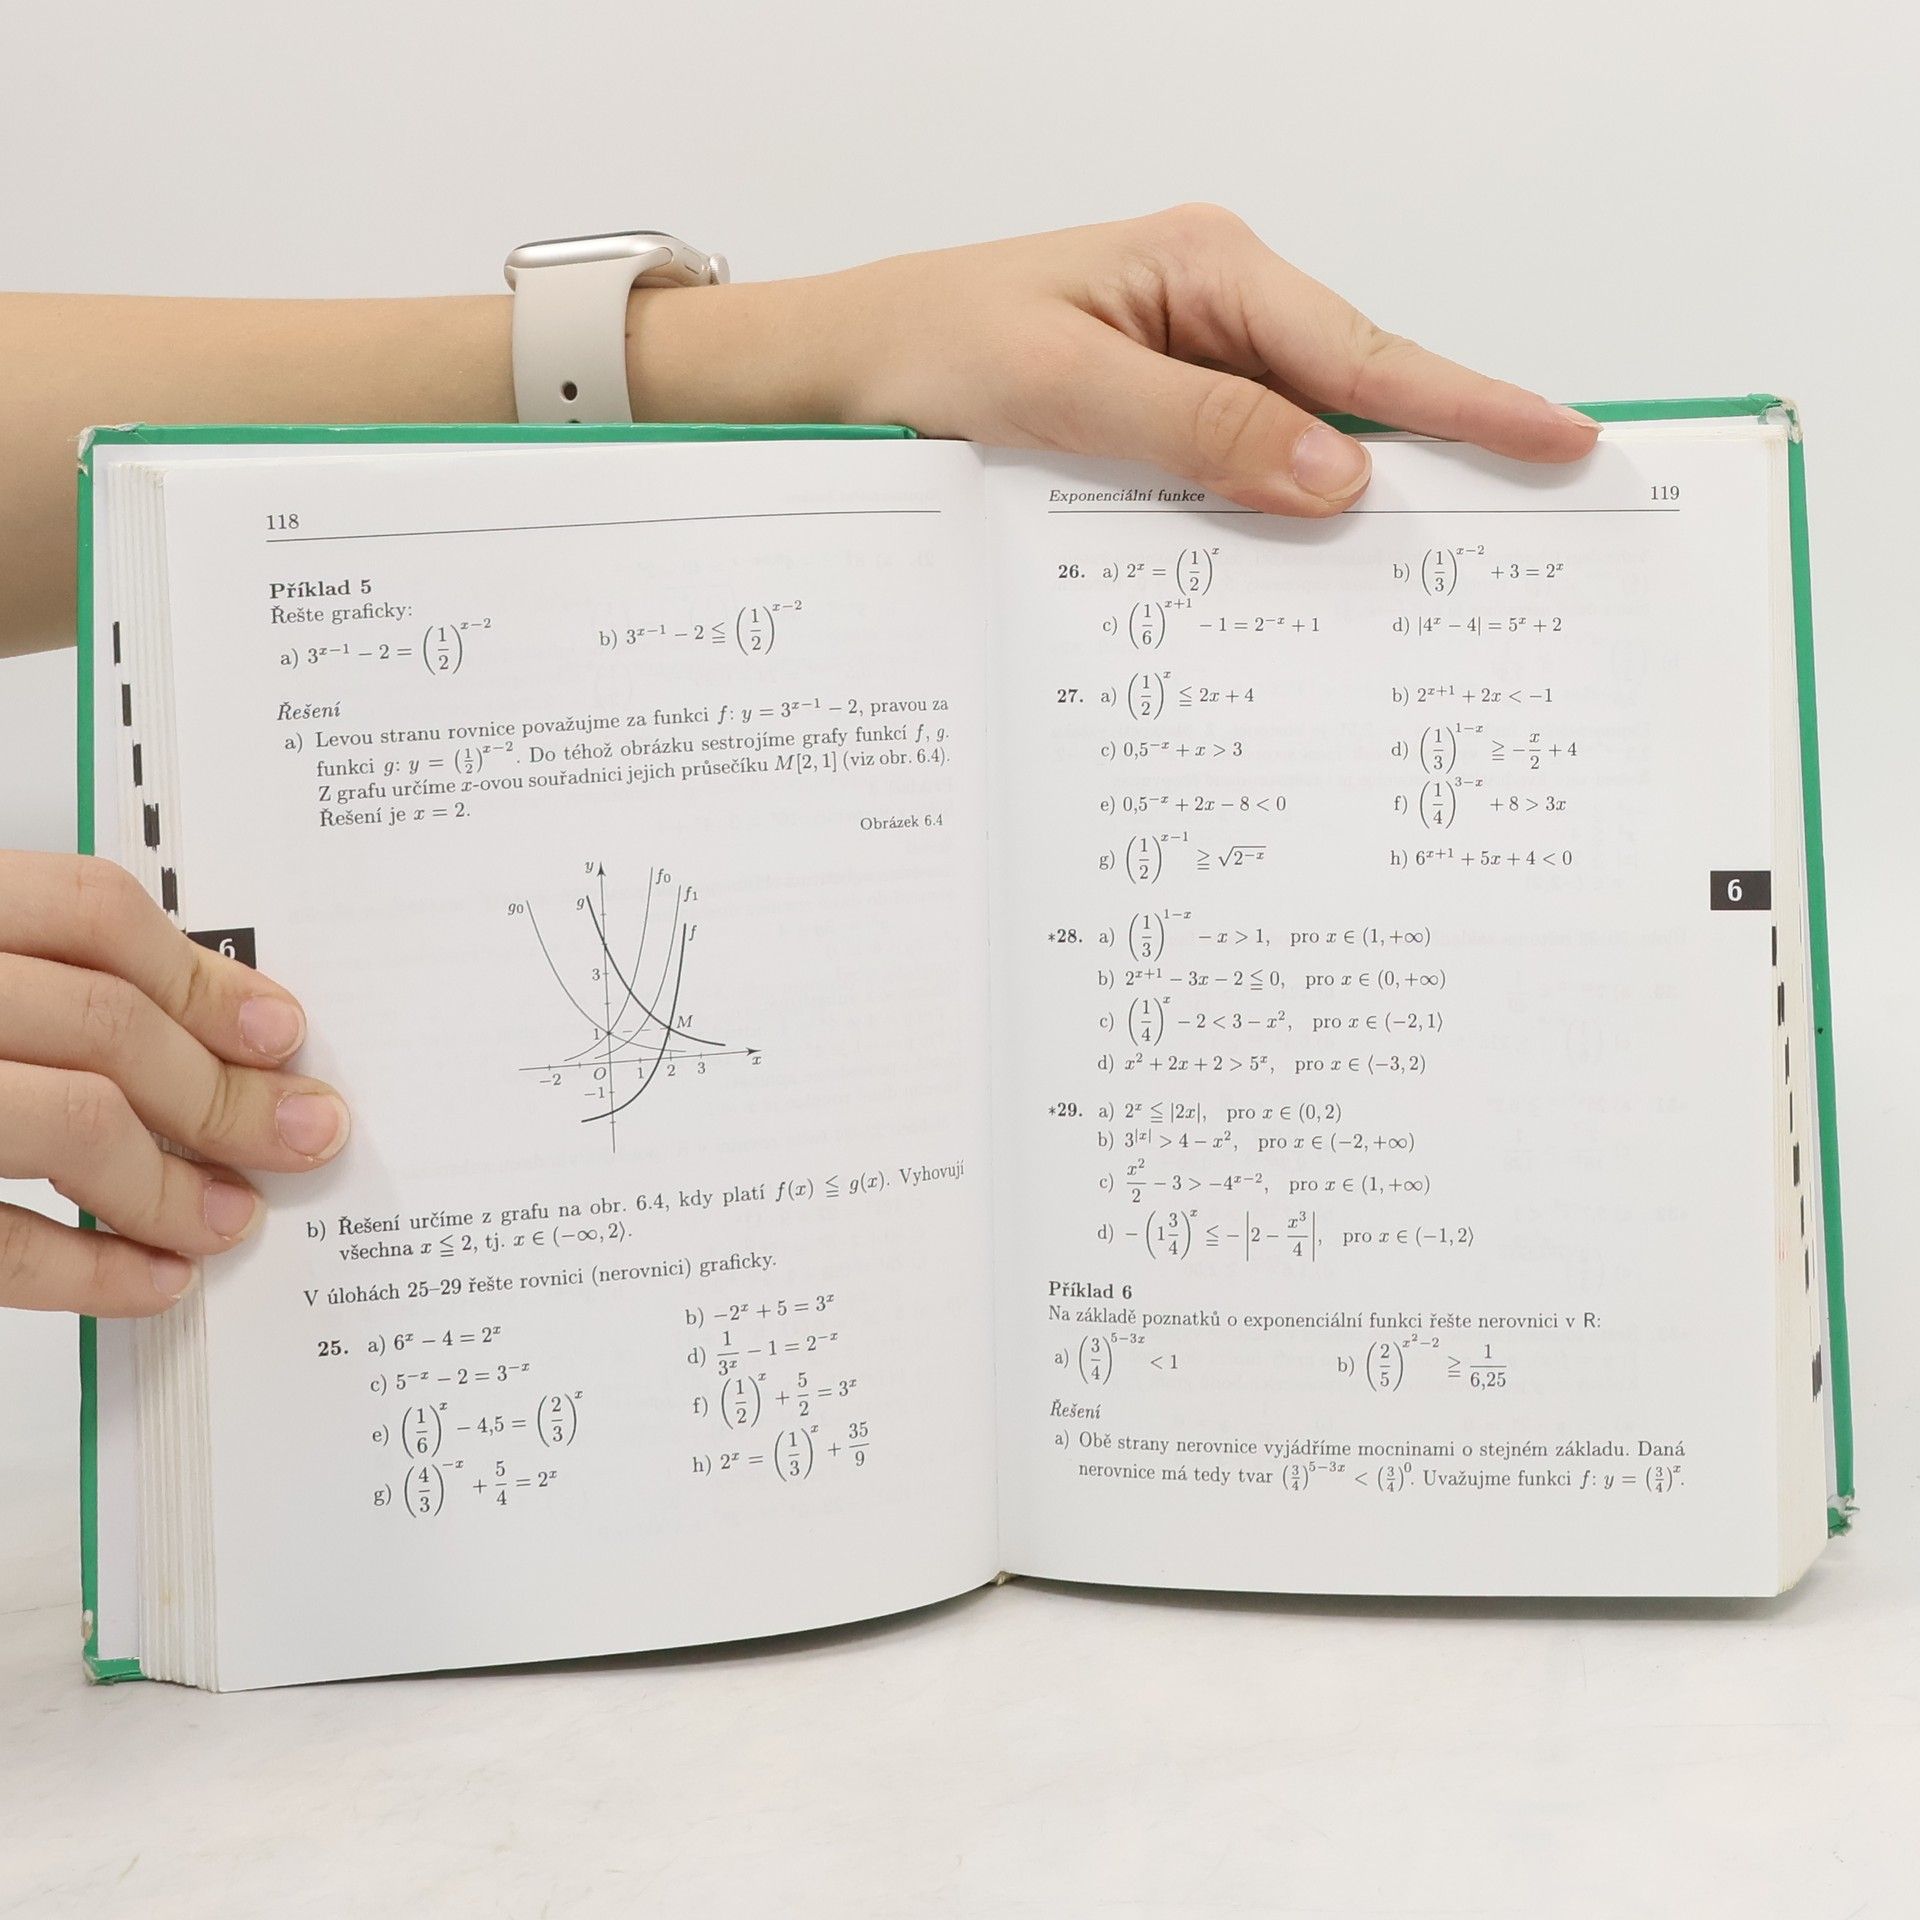 118
Příklad 5
Řešte graficky:
a) 3^{x−1} − 2 = (1/2)^{x−2} b) 3^{x−1} − 2 ≦ (1/2)^{x−2}
Řešení
a) Levou stranu rovnice považujme za funkci f: y = 3^{x−1} − 2, pravou za
funkci g: y = (1/2)^{x−2}. Do téhož obrázku sestrojíme grafy funkcí f, g.
Z grafu určíme x-ovou souřadnici jejich průsečíku M[2, 1] (viz obr. 6.4).
Řešení je x = 2.
Obrázek 6.4
y f₀
g₀ g f₁
f
3
1 M
−2 O 1 2 3 x
−1
6
b) Řešení určíme z grafu na obr. 6.4, kdy platí f(x) ≦ g(x). Vyhovují
všechna x ≦ 2, tj. x ∈ (−∞, 2⟩.
V úlohách 25–29 řešte rovnici (nerovnici) graficky.
25. a) 6^x − 4 = 2^x b) −2^x + 5 = 3^x
c) 5^{−x} − 2 = 3^{−x} d) 1/3^x − 1 = 2^{−x}
e) (1/6)^x − 4,5 = (2/3)^x f) (1/2)^x + 5/2 = 3^x
g) (4/3)^{−x} + 5/4 = 2^x h) 2^x = (1/3)^x + 35/9
Exponenciální funkce 119
26. a) 2^x = (1/2)^x b) (1/3)^{x−2} + 3 = 2^x
c) (1/6)^{x+1} − 1 = 2^{−x} + 1 d) |4^x − 4| = 5^x + 2
27. a) (1/2)^x ≦ 2x + 4 b) 2^{x+1} + 2x < −1
c) 0,5^{−x} + x > 3 d) (1/3)^{1−x} ≧ −x/2 + 4
e) 0,5^{−x} + 2x − 8 < 0 f) (1/4)^{3−x} + 8 > 3x
g) (1/2)^{x−1} ≧ √(2^{−x}) h) 6^{x+1} + 5x + 4 < 0
6
*28. a) (1/3)^{1−x} − x > 1, pro x ∈ (1, +∞)
b) 2^{x+1} − 3x − 2 ≦ 0, pro x ∈ (0, +∞)
c) (1/4)^x − 2 < 3 − x², pro x ∈ (−2, 1⟩
d) x² + 2x + 2 > 5^x, pro x ∈ ⟨−3, 2)
*29. a) 2^x ≦ |2x|, pro x ∈ (0, 2)
b) 3^{|x|} > 4 − x², pro x ∈ (−2, +∞)
c) x²/2 − 3 > −4^{x−2}, pro x ∈ (1, +∞)
d) −(1 3/4)^x ≦ −|2 − x³/4|, pro x ∈ (−1, 2⟩
Příklad 6
Na základě poznatků o exponenciální funkci řešte nerovnici v R:
a) (3/4)^{5−3x} < 1 b) (2/5)^{x²−2} ≧ 1/6,25
Řešení
a) Obě strany nerovnice vyjádříme mocninami o stejném základu. Daná
nerovnice má tedy tvar (3/4)^{5−3x} < (3/4)^0. Uvažujme funkci f: y = (3/4)^x.